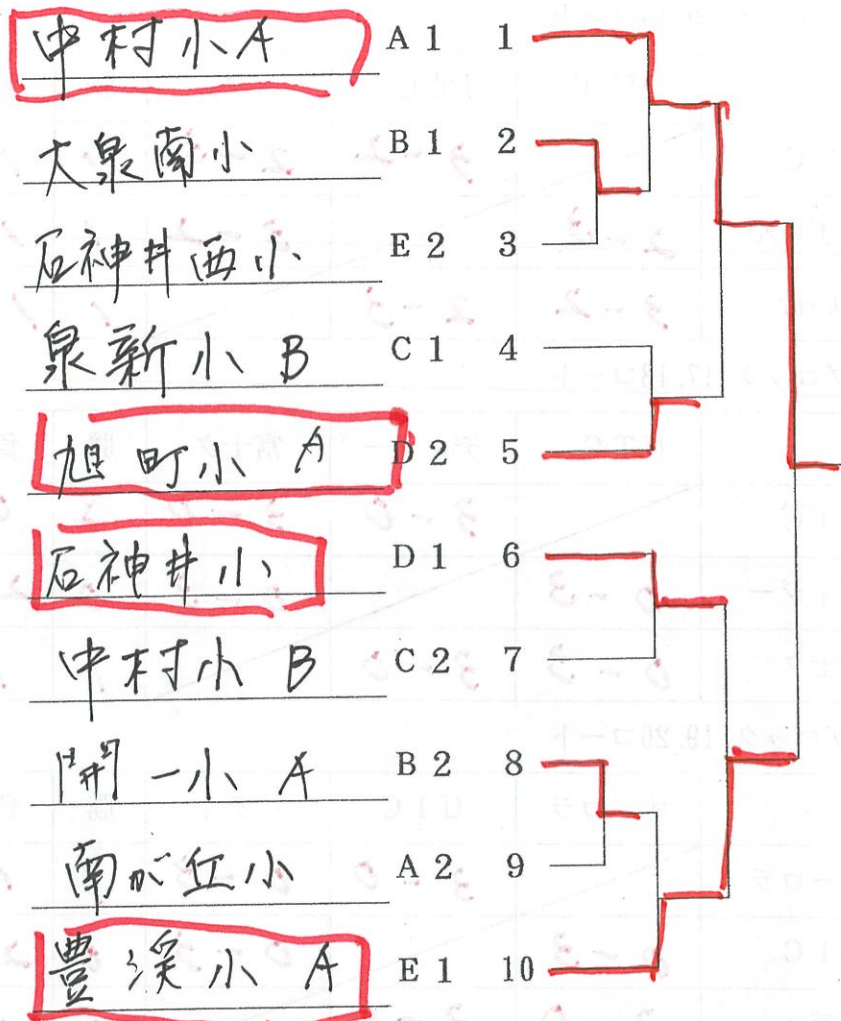 中村小A A1 1
大泉南小 B1 2
石神井西小 E2 3
泉新小 B C1 4
旭町小 A D2 5
石神井小 D1 6
中村小 B C2 7
開一小 A B2 8
南が丘小 A2 9
豊渓小 A E1 10